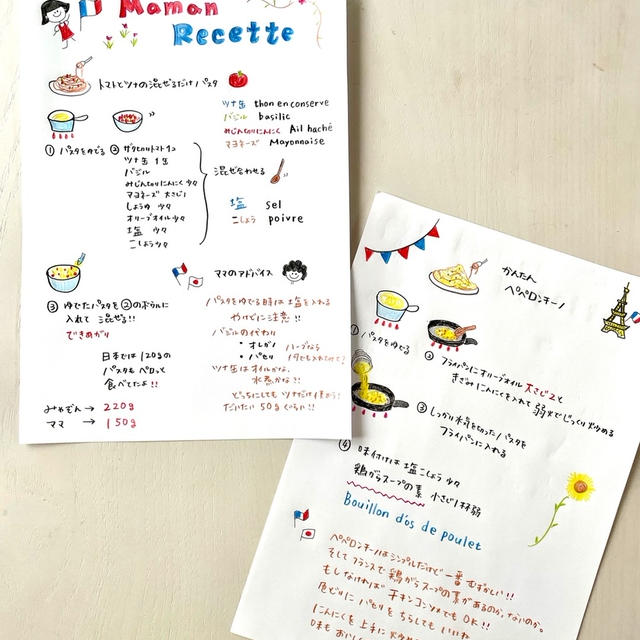 Maman
Recette
トマトとツナの混ぜるだけパスタ
ツナ缶 thon en conserve
バジル basilic
みじん切りにんにく Ail haché
マヨネーズ Mayonnaise
① パスタをゆでる
② ザク切りトマト1コ
ツナ缶 1缶
バジル
みじん切りにんにく 少々
マヨネーズ 大さじ1
しょうゆ 少々
オリーブオイル 少々
塩 少々
こしょう 少々
混ぜ合わせる
塩 sel
こしょう poivre
③ ゆでたパスタを②のボウルに
入れて 混ぜる!!
できあがり
日本では 120gの
パスタも ペロッと
食べてたよ!!
みゃぞん → 220g
ママ → 150g
ママのアドバイス
パスタをゆでる時は 塩を入れる
やけどに注意!!
バジルの代わり
・オレガノ
・パセリ
ハーブなら
何でも入れていけて?
ツナ缶はオイルかな、
水煮かな?!
どっちにしても ツナだけ使おう!
だいたい 50gぐらい!!
かんたん
ペペロンチーノ
① パスタをゆでる
② フライパンにオリーブオイル 大さじ2と
きざみにんにくを入れて 弱火でじっくり炒める
③ しっかり水気を切ったパスタを
フライパンに入れる
④ 味付けは 塩こしょう 少々
鶏がらスープの素 小さじ1杯弱
Bouillon d'os de poulet
ペペロンチーノはシンプルだけど 一番 むずかしい!!
そしてフランスで 鶏がらスープの素があるのか、ないのか。
もしなければ チキンコンソメでも OK!!
色どりに パセリを ちらしても いいね
にんにくを 上手に
味も